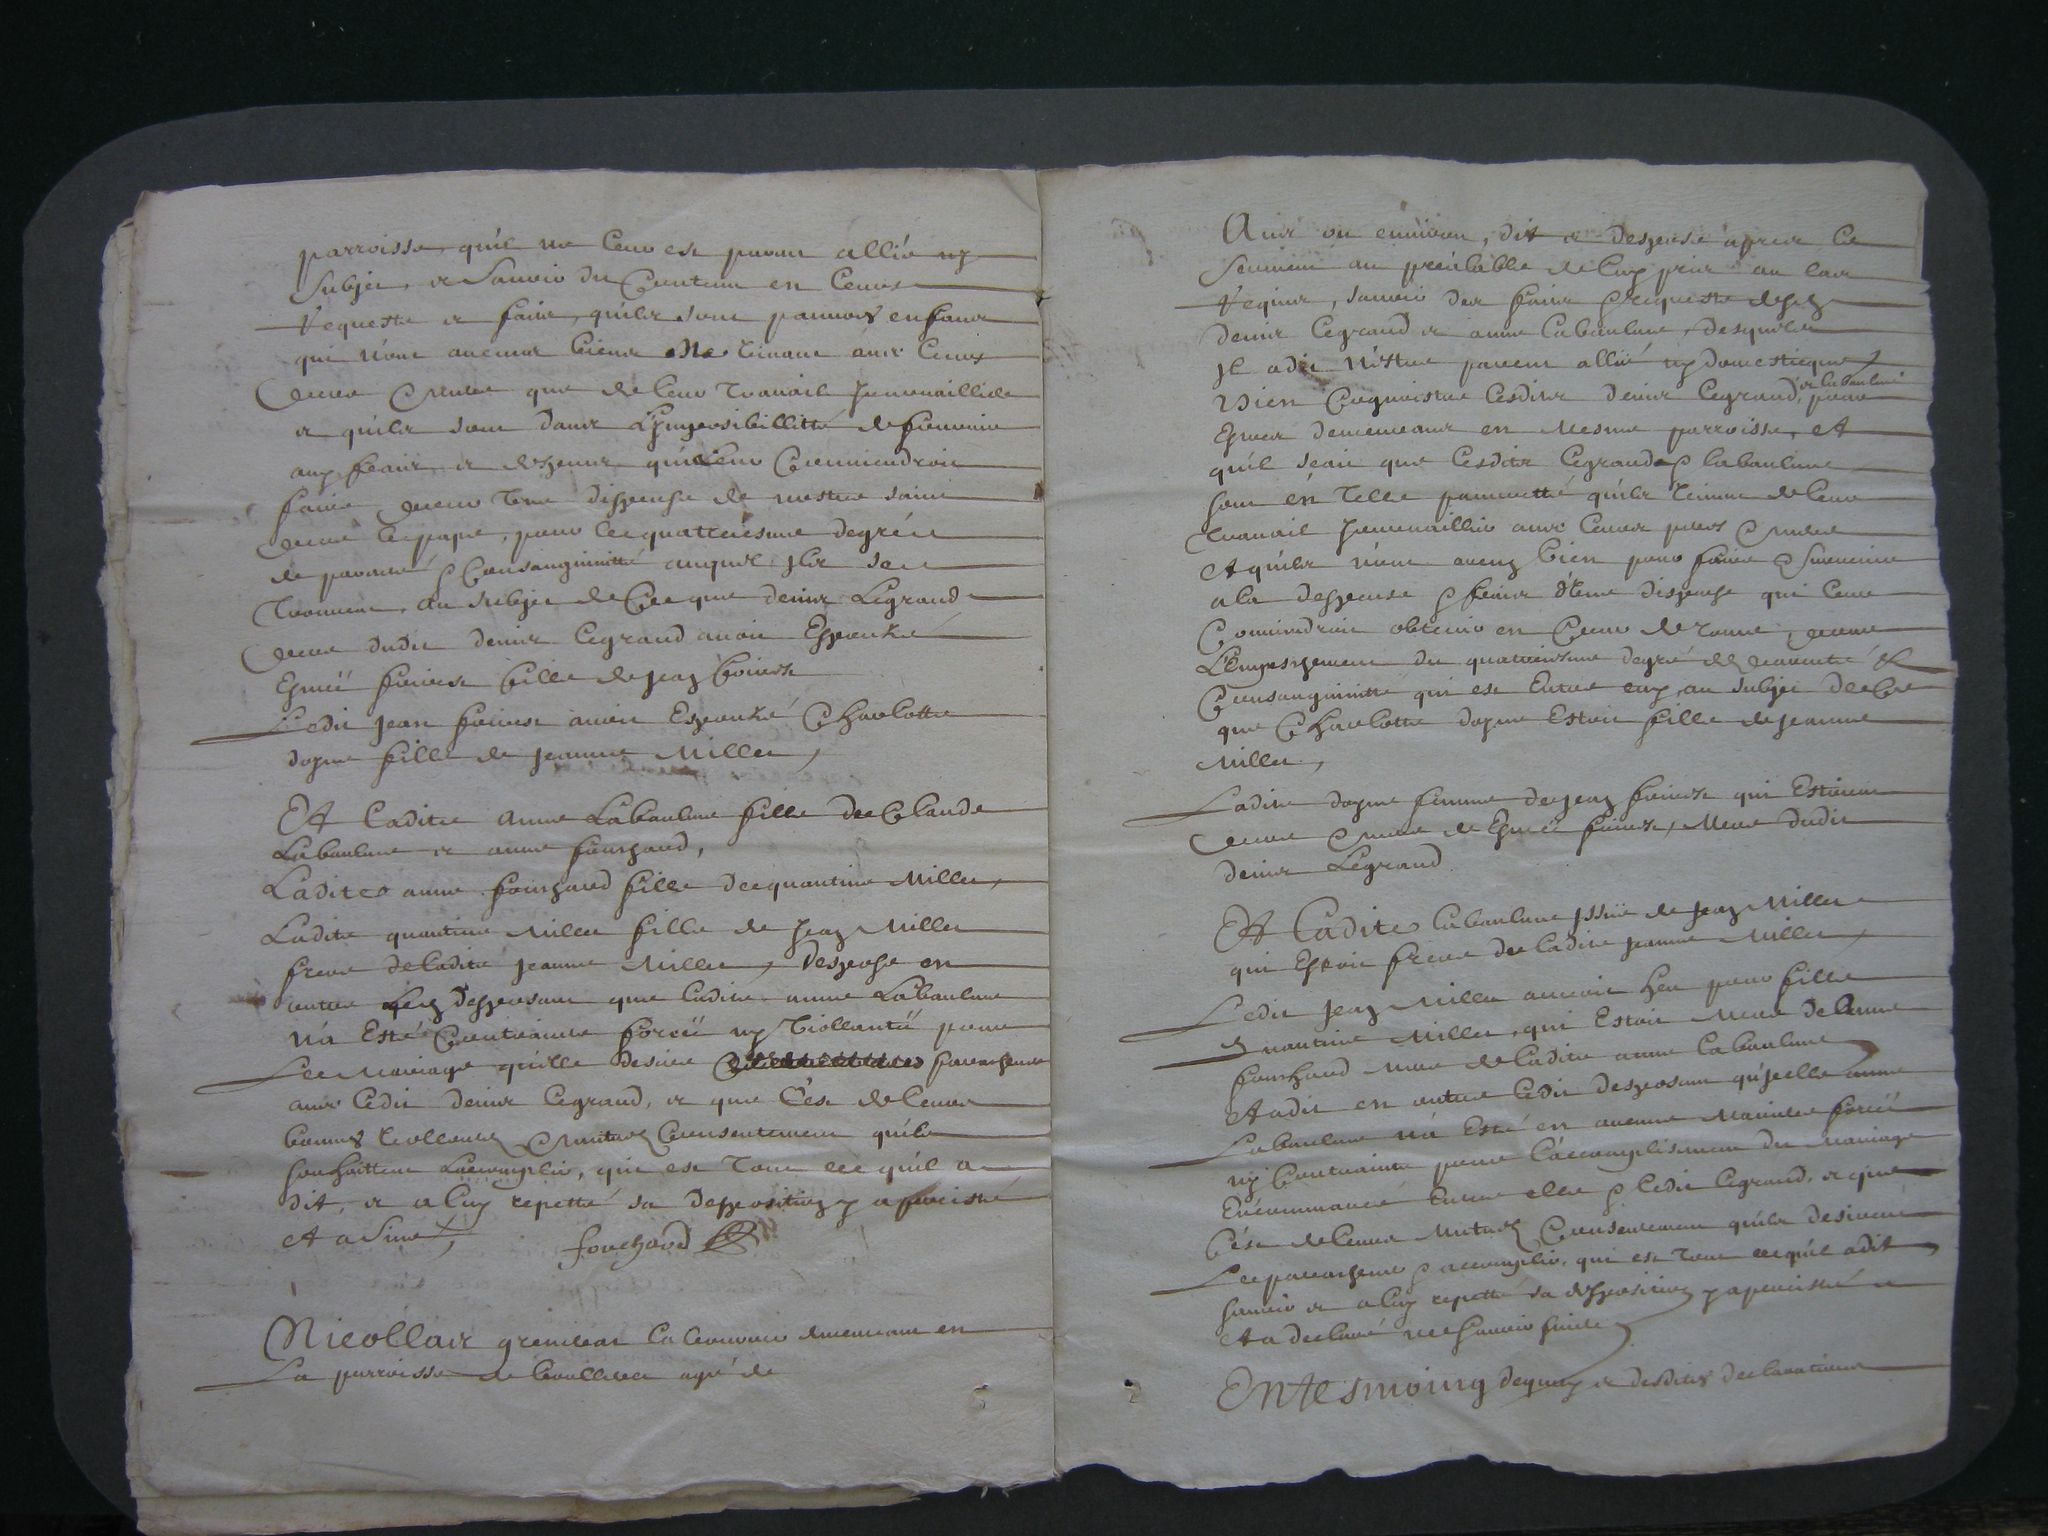 parroisse, qu'il ne leur est parent allié ny
subject, et scavoir du contenu en leurs
requeste et faire, qu'ils sont pauvres enfans
qui n'ont aucuns biens ne vivant avec leurs
pere & mere que de leur travail journaillier
et qu'ils sont dans l'jmposibillitté de fournir
aux fraix et despense qu'il leur conviendroit
faire pour obtenir dispense de nostre saint
pere le pape, pour le quatriesme degré
de parenté & consanguinitté auquel jls se
trouvent, au subject de ce que denis Legrand
pere dudit denis legrand avoit Espousé
fille de jean
Ledit jean avoit Espousé Charlotte
dogne fille de jeanne Miller,
Et ladite anne Labaulme fille de Claude
Labaulme et anne fourchaud,
Ladite anne fourchaud fille de quantine Miller,
Ladite quantine Miller fille de jean Miller
frere de ladite jeanne Miller, Despose en
outre Led desposant que ladite anne Labaulme
n'a Esté contrainte forcée ny viollantée pour
Le mariage qu'elle desire parachever
avec ledit denis legrand, et que c'est de leurs
bonnes vollontés & mutuel consentement qu'ils
souhaittent l'accomplir, qui est tout ce qu'il a
dit, et a luy repetté sa desposition y a persisté
Et a Siné,
fouchaud
Nicollas laboureur demeurant en
La parroisse de agé de
ans ou environ, dit et despose apres le
serment au prealable de luy pris au cas
requis, scavoir des faits & requeste desd
denis legrand et anne labaulme, desquels
jl a dit n'estre parent allié ny domesticque
Bien cognoistre lesdits denis legrand, et labaulme pour
Estre demeurans en mesme parroisse, et
qu'il scait que lesdits legrand & labaulme
sont en telle pauvretté qu'ils vivent de leur
travail journaillier avec leurs peres & meres
et qu'ils n'ont aucuns bien pour faire & survenir
a la despense & fraix d'une dispense qui leur
Conviendroit obtenir en Cour de rome, pour
L'Empeschement du quatriesme degré de parenté &
Consanguinitté qui est Entre eux, au subject de ce
que Charlotte dogne Estoit fille de jeanne
Miller,
Ladite dogne femme de jean qui Estoient
pere & mere de Mere dudit
denis Legrand
Et Ladite labaulme jssüe de jean Miller
qui Estoit frere de ladite jeanne Miller,
Ledit jean Miller auroit heu pour fille
quantine Miller, qui Estoit Mere de anne
fourchaud Mere de ladite anne labaulme
Et a dit en outre ledit desposant qu'jcelle anne
Labaulme n'a Esté en aucune maniere forcée
ny Contrainte pour l'accomplissement du mariage
Encommancé Entre elle & ledit legrand, et que
C'est de leurs mutuel Consentement qu'ils desirent
Le parachever & accomplir, qui est tout ce qu'il a dit
scavoir et a luy repetté sa desposition y a persisté
Et a declaré ne scavoir siner
En tesmoing dequoy et desdites declarations